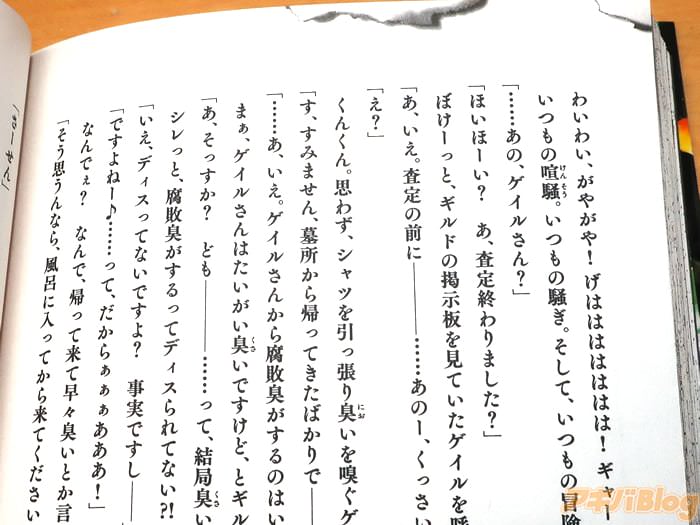 わいわい、がやがや！ げはははははは！ ギャー
いつもの喧騒。いつもの騒ぎ。そして、いつもの冒険
けんそう
「……あの、ゲイルさん？」
「ほいほーい？ あ、査定終わりました？」
ぼけーっと、ギルドの掲示板を見ていたゲイルを呼
「あ、いえ。査定の前に――……あのー、くっさい
「え？」
くんくん。思わず、シャツを引っ張り臭いを嗅ぐゲ
にお
「す、すみません、墓所から帰ってきたばかりで――
「……あ、いえ。ゲイルさんから腐敗臭がするのはい
まぁ、ゲイルさんはたいがい臭いですけど、とギル
くさ
「あ、そっすか？ ども――……って、結局臭い
くさ
シレっと、腐敗臭がするってディスられてない?!
「いえ、ディスってないですよ？ 事実ですし――
「ですよねー♪……って、だからぁぁぁあああ！」
なんでぇ？ なんで、帰って来て早々臭いとか言
「そう思うんなら、風呂に入ってから来てください
アキバBlog